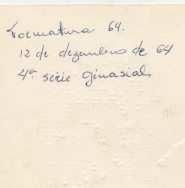 Formatura 64.
12 de dezembro de 64
4ª série ginasial